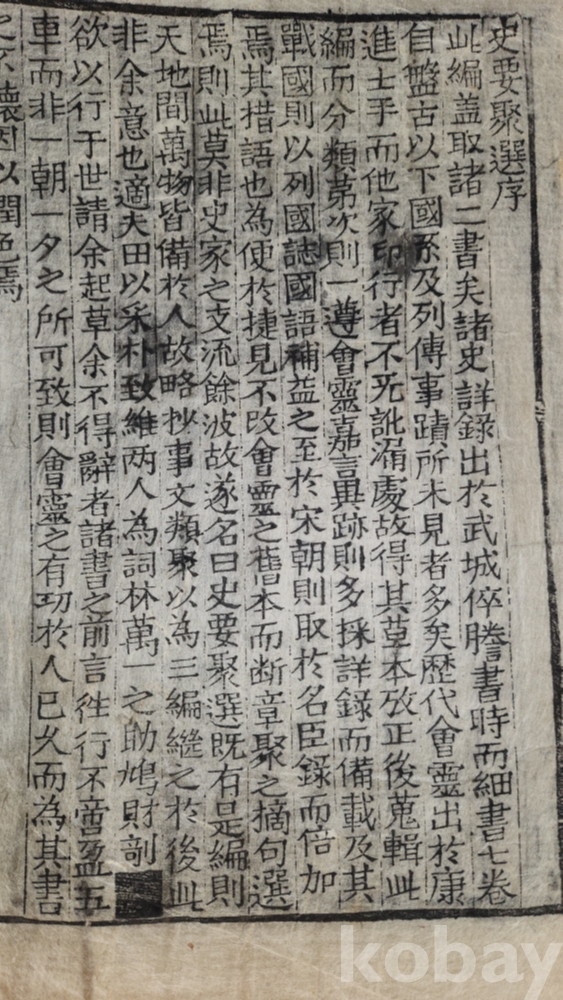 史要聚選序
此編盖取諸二書矣諸史詳錄出於武城倅謄書時而細書七卷
自盤古以下國系及列傳事蹟所未見者多矣歷代會靈出於康
進士手而他家印行者不死訛漏處故得其草本攷正後蒐輯此
編而分類苐次則一遵會靈嘉言異跡則多採詳錄而備載及其
戰國則以列國誌國語補益之至於宋朝則取於名臣錄而倍加
焉其措語也為便於捷見不改會靈之舊本而断章聚之摘句選
焉則此莫非史家之支流餘波故遂名曰史要聚選既有是編則
天地間萬物皆備於人故略抄事文類聚以為三編継之於後此
非余意也適夫田以采朴致維两人為詞林萬一之助鳩財剞
欲以行于世請余起草余不得辭者諸書之前言徃行不啻盈五
車而非一朝一夕之所可致則會靈之有功於人已久而為其書
之不壞因以潤色焉
kobay